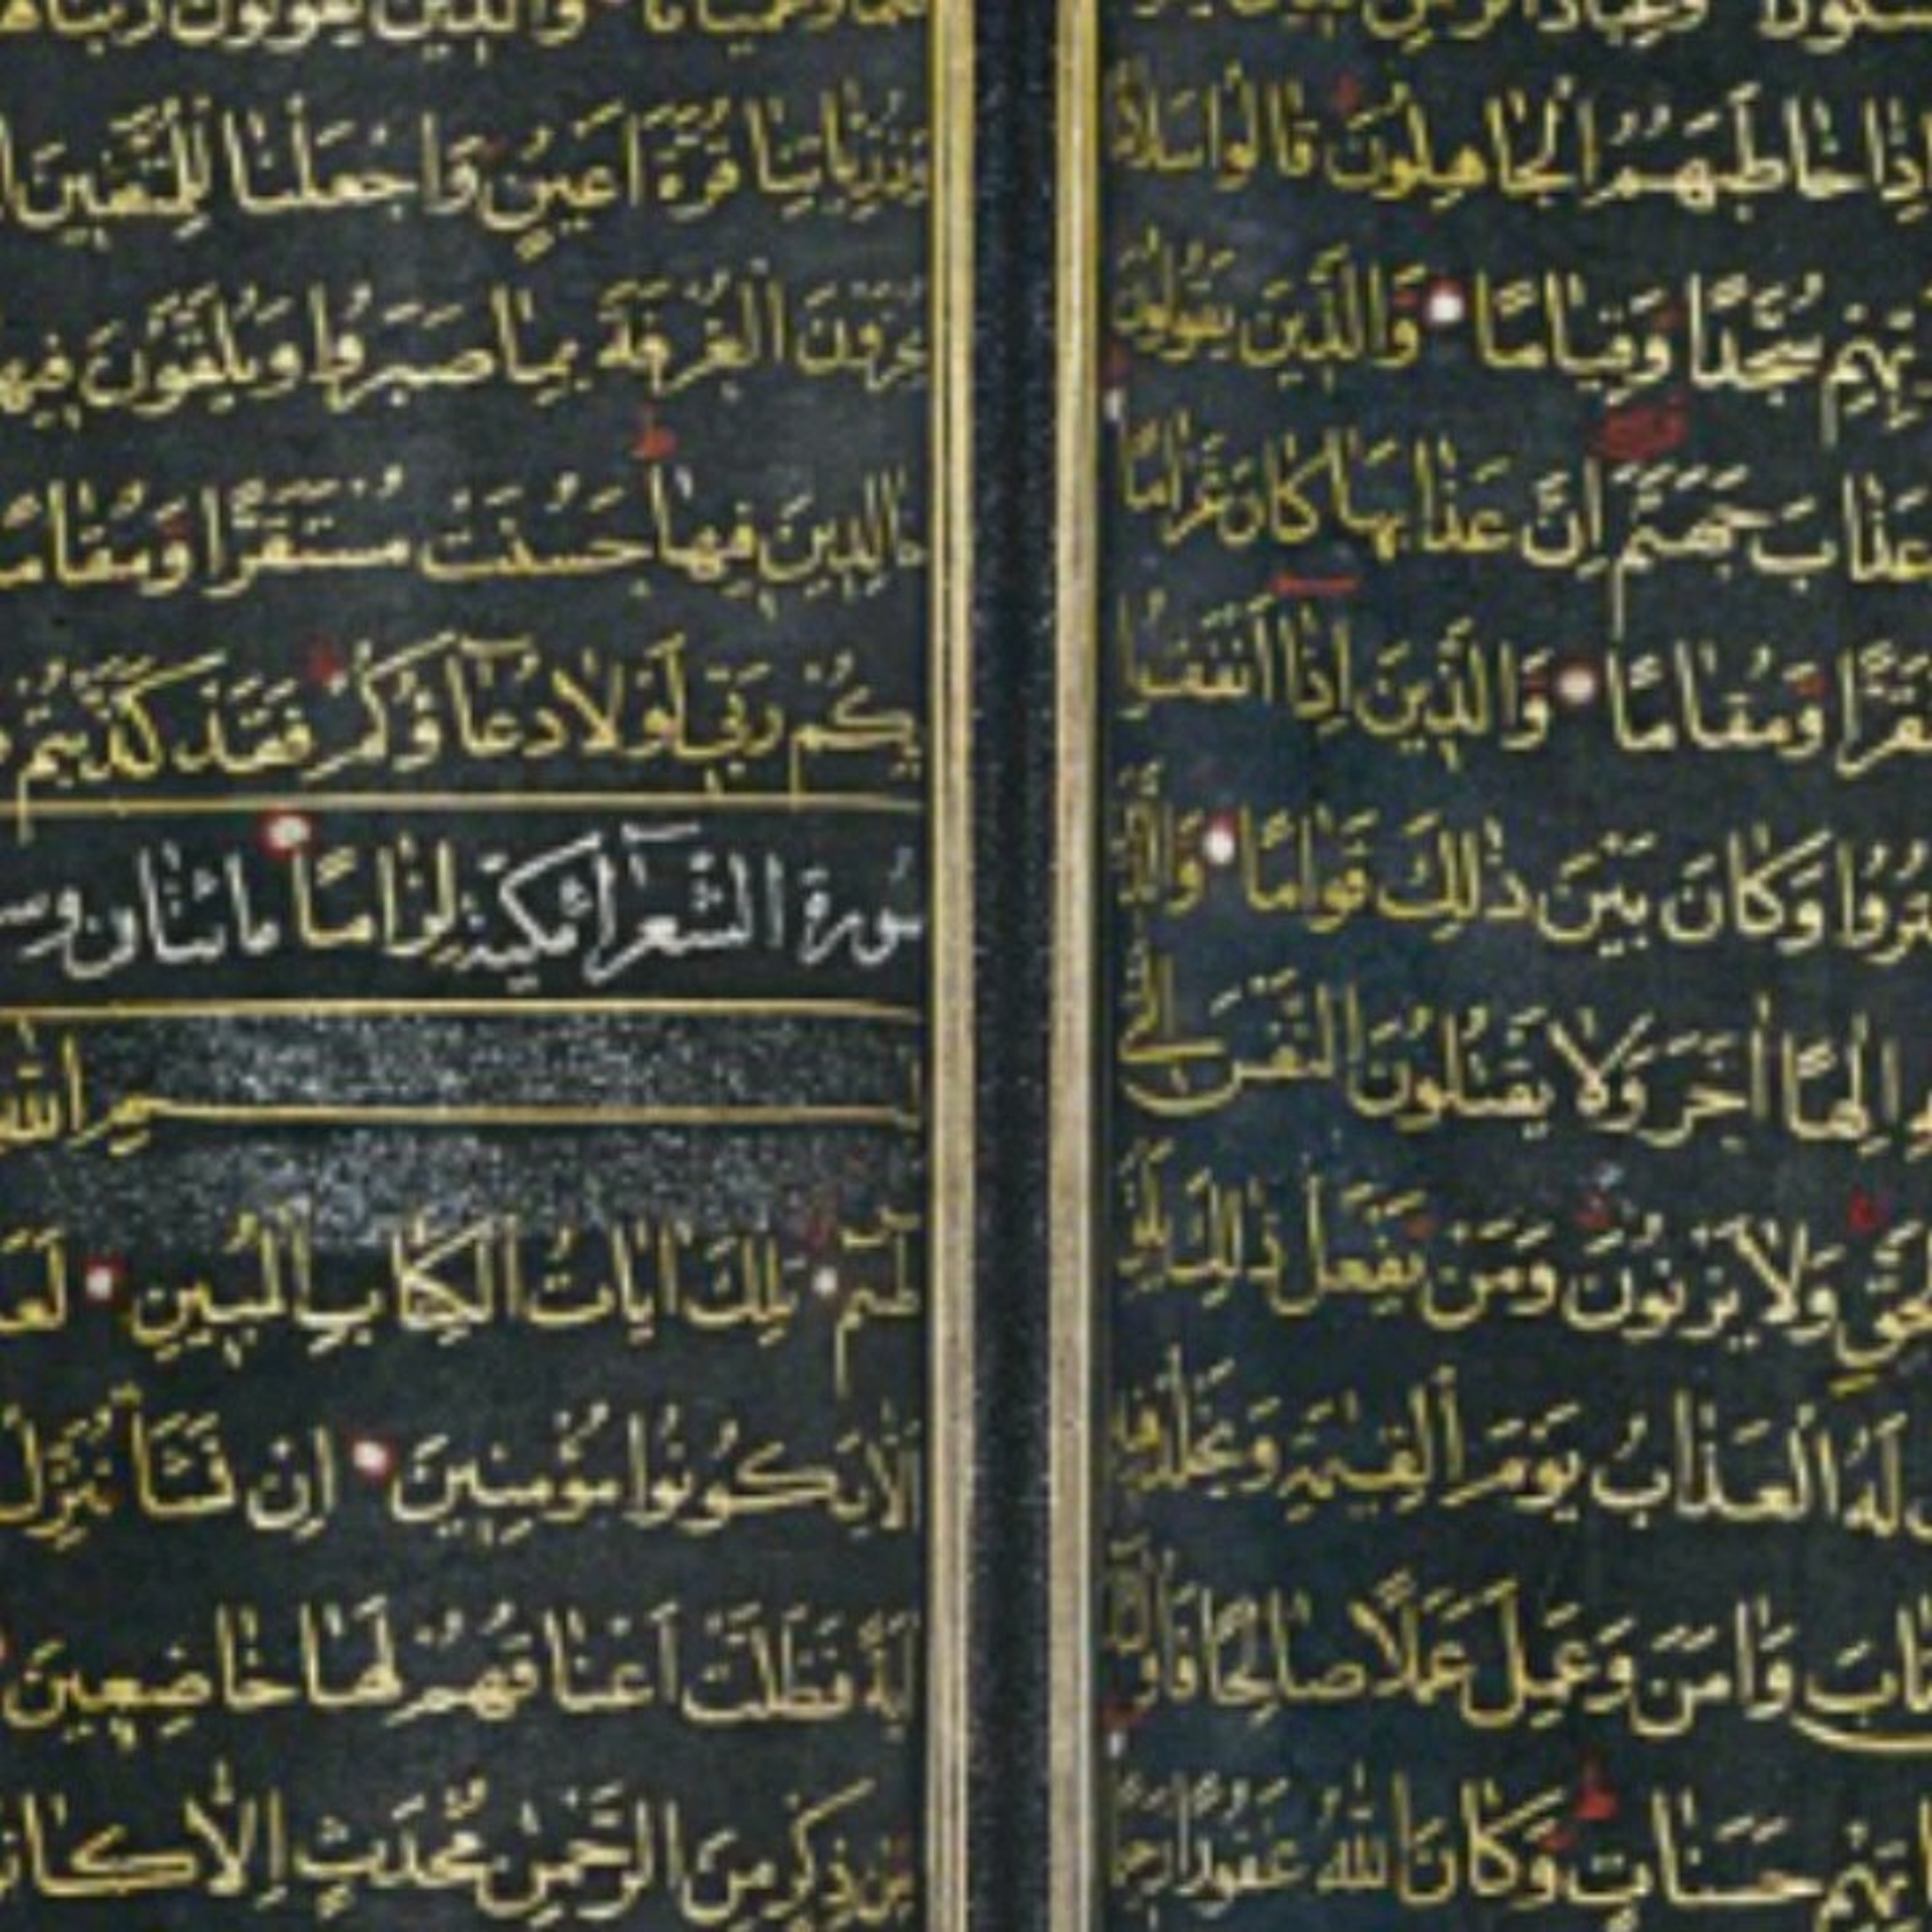 وَعِبَادُ الرَّحْمٰنِ
اِذَا خَاطَبَهُمُ الْجَاهِلُونَ قَالُوا سَلَامًا
سُجَّدًا وَقِيَامًا وَالَّذِينَ يَقُولُونَ
عَذَابَ جَهَنَّمَ اِنَّ عَذَابَهَا كَانَ غَرَامًا
وَمُقَامًا وَالَّذِينَ اِذَا اَنْفَقُوا
وَكَانَ بَيْنَ ذٰلِكَ قَوَامًا
اِلٰهًا اٰخَرَ وَلَا يَقْتُلُونَ النَّفْسَ الَّتِي
وَلَا يَزْنُونَ وَمَنْ يَفْعَلْ ذٰلِكَ يَلْقَ
لَهُ الْعَذَابُ يَوْمَ الْقِيٰمَةِ وَيَخْلُدْ
وَاٰمَنَ وَعَمِلَ عَمَلًا صَالِحًا
حَسَنَاتٍ وَكَانَ اللّٰهُ غَفُورًا
وَالَّذِينَ يَقُولُونَ
وَذُرِّيَّاتِنَا قُرَّةَ اَعْيُنٍ وَاجْعَلْنَا لِلْمُتَّقِينَ
الْغُرْفَةَ بِمَا صَبَرُوا وَيُلَقَّوْنَ فِيهَا
خَالِدِينَ فِيهَا حَسُنَتْ مُسْتَقَرًّا وَمُقَامًا
رَبِّي لَوْلَا دُعَاۤؤُكُمْ فَقَدْ كَذَّبْتُمْ
سُورَةُ الشُّعَرَاۤءِ مَكِّيَّة لِزَامًا مائتان
اللّٰه
طٰسۤمۤ تِلْكَ اٰيَاتُ الْكِتَابِ الْمُبِينِ
اَلَّا يَكُونُوا مُؤْمِنِينَ اِنْ نَشَأْ نُنَزِّلْ
فَظَلَّتْ اَعْنَاقُهُمْ لَهَا خَاضِعِينَ
ذِكْرٍ مِنَ الرَّحْمٰنِ مُحْدَثٍ اِلَّا